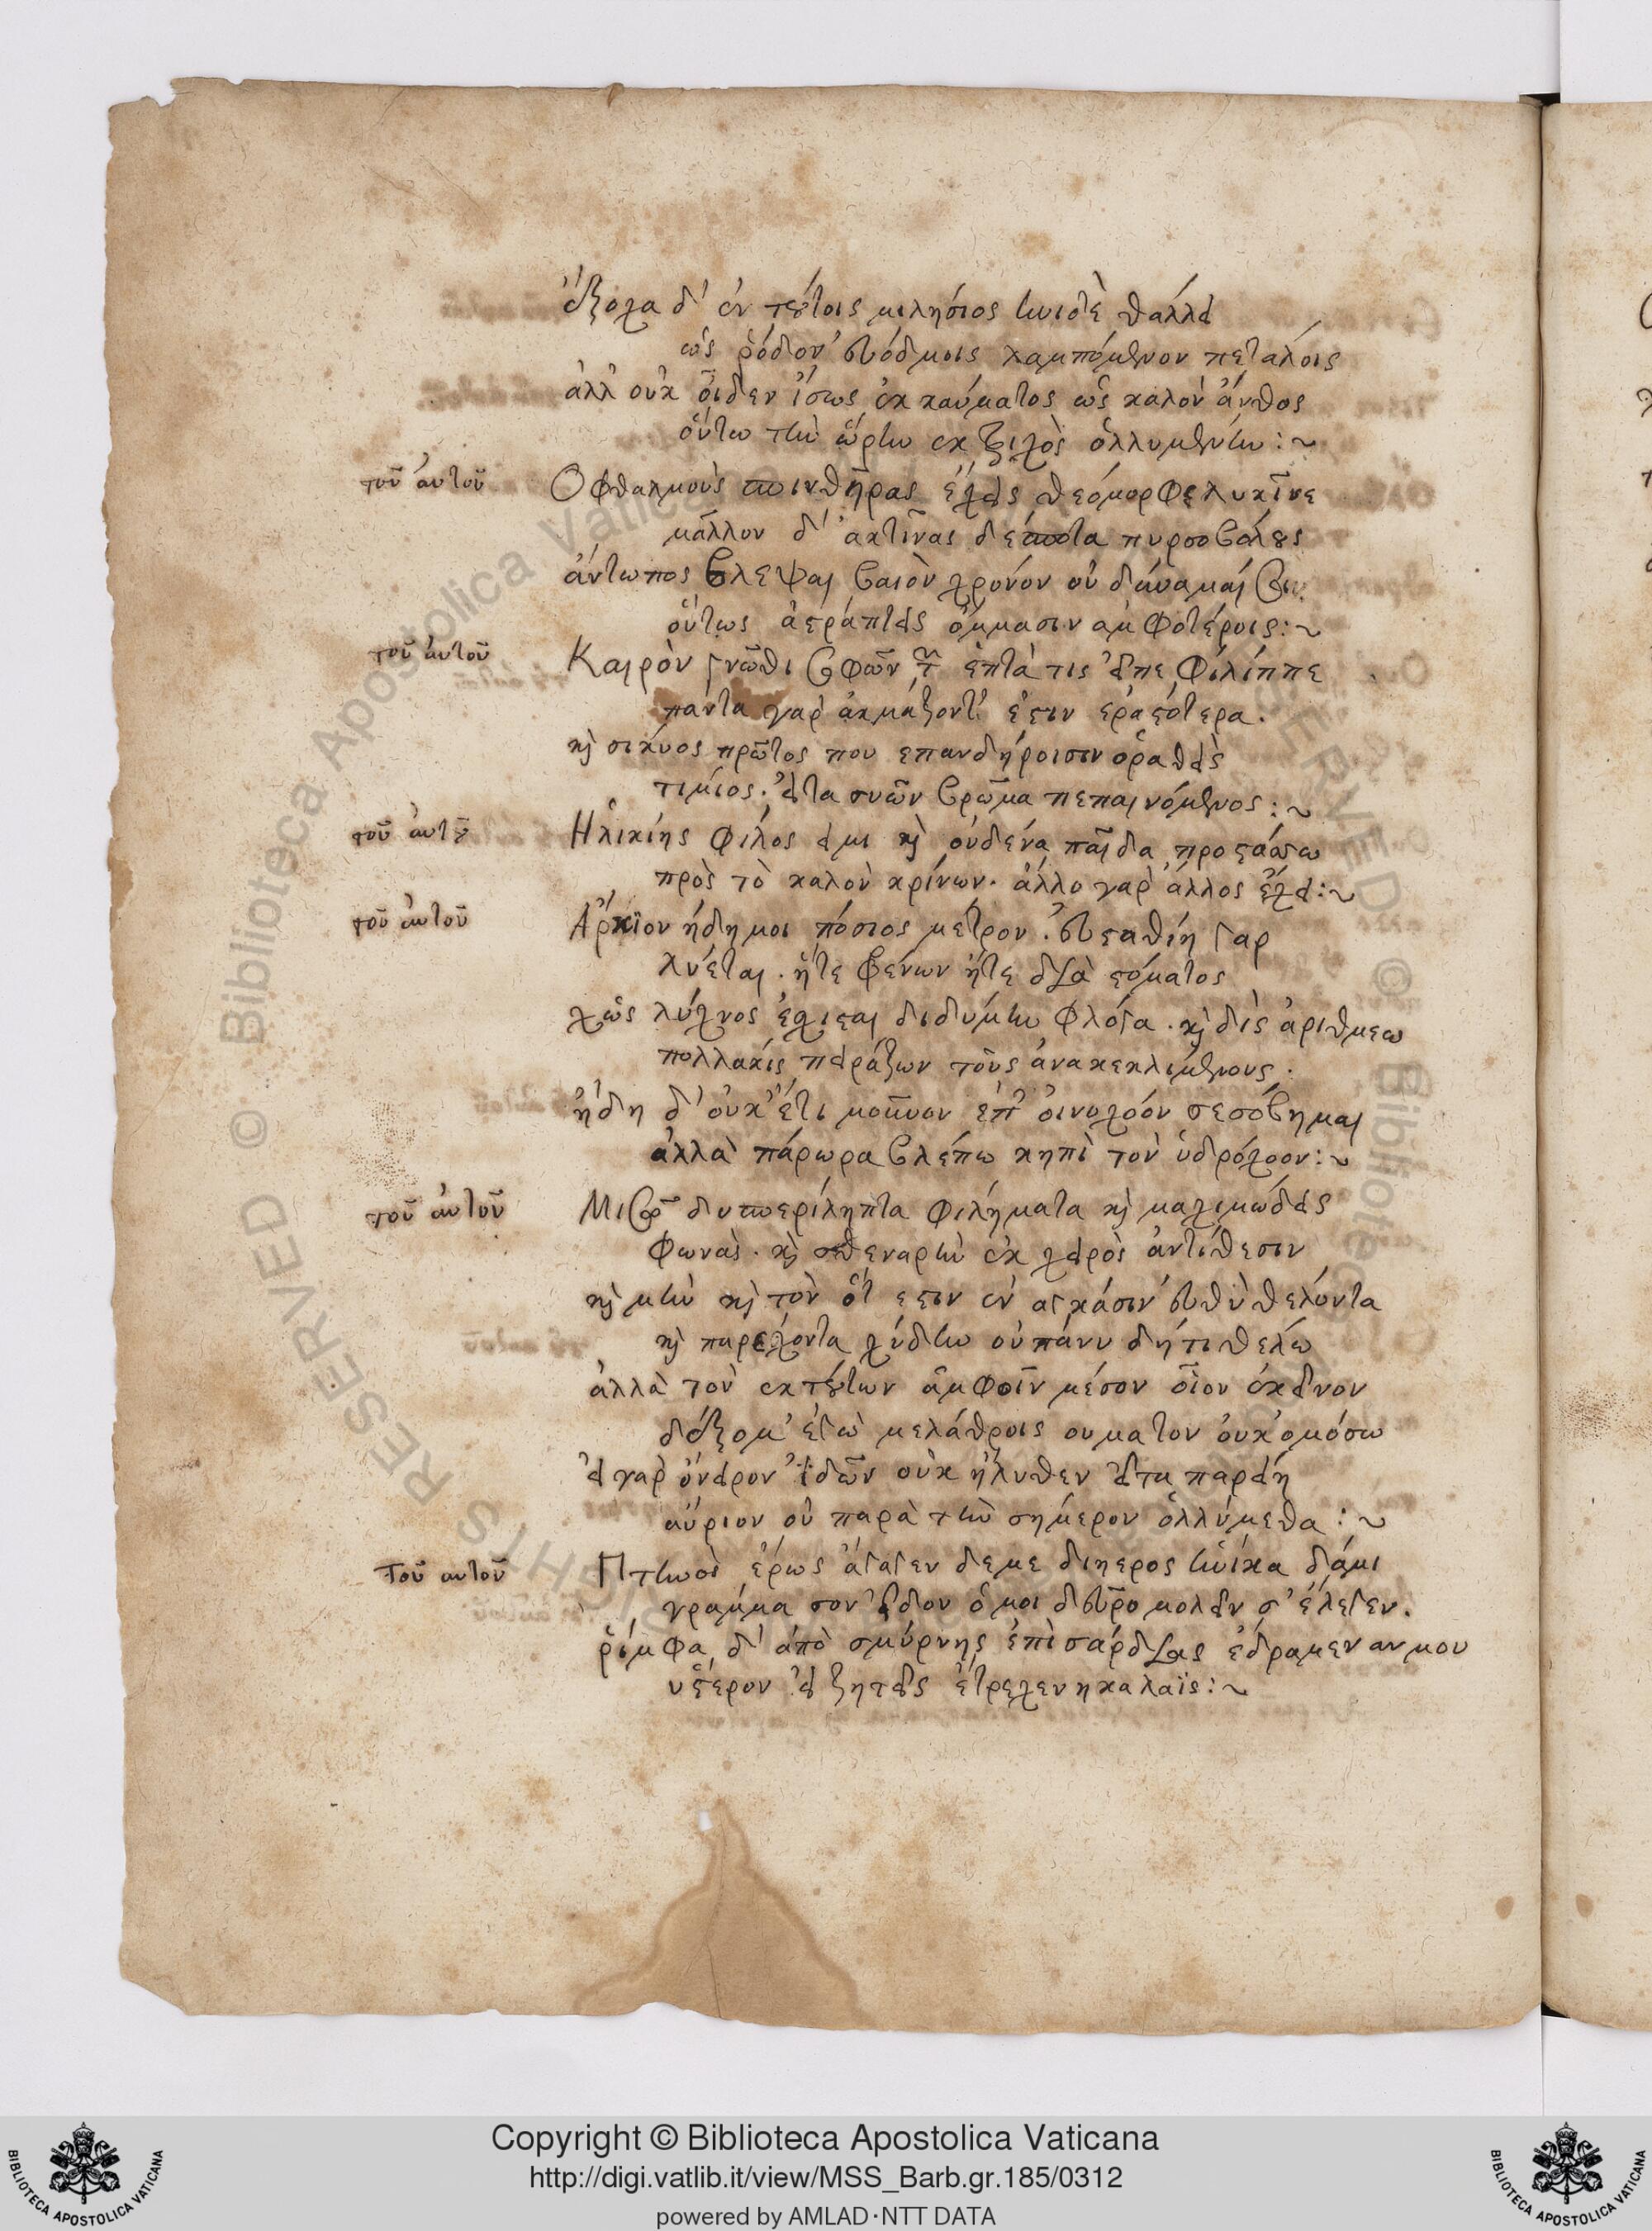 ἔξοχα δ' ἐν τούτοις μιλήσιος ἡνιδὲ θάλλει
ὡς ῥόδον εὐόδμοις λαμπόμενον πετάλοις
ἀλλ' οὐκ οἶδεν ἴσως ἐκ καύματος ὡς καλὸν ἄνθος
οὕτω τὴν ὥρην ἐκ τριχὸς ὀλλυμένην :~
τοῦ αὐτοῦ
Ὀφθαλμοὺς σπινθῆρας ἔχεις θεόμορφε λυκῖνε
μᾶλλον δ' ἀκτῖνας δέσποτα πυρσοβόλους
ἀντωπὸς βλέψαι βαιὸν χρόνον οὐ δύναμαί σοι
οὕτως ἀστράπτεις ὄμμασιν ἀμφοτέροις :~
τοῦ αὐτοῦ
Καιρὸν γνῶθι σοφῶν τῶν ἑπτά τις εἶπε φίλιππε
πάντα γὰρ ἀκμάζοντ' ἐστιν ἐραστότερα.
καὶ σικυὸς πρῶτός που ἐπανδήροισιν ὁραθεὶς
τιμιος. εἶτα συῶν βρῶμα πεπαινόμενος :~
τοῦ αὐτοῦ
Ἡλικίης φίλος εἰμὶ καὶ οὐδένα παῖδα προτάσσω
πρὸς τὸ καλὸν κρίνων. ἄλλο γὰρ ἄλλος ἔχει :~
τοῦ αὐτοῦ
Ἄρκιον ἤδη μοι πόσιος μέτρον. εὐσταθίη γαρ
λύεται. ἥτε φρένων ἥτε διὰ στόματος
χὡς λύχνος ἔσχισται διδύμην φλόγα. καὶ δὶς ἀριθμέω
πολλάκις πειράζων τοὺς ἀνακεκλιμένους.
ἤδη δ' οὐκ ἔτι μοῦνον ἐπ' οἰνοχόον σεσόβημαι
ἀλλὰ πάρωρα βλέπω κηπὶ τὸν ὑδρόχοον :~
τοῦ αὐτοῦ
Μισῶ δυσπερίληπτα φιλήματα καὶ μαχιμώδεις
φωνάς. καὶ σθεναρὴν ἐκ χειρὸς ἀντίθεσιν
καὶ μὴν καὶ τὸν ὅτ' εστιν ἐν αγκάσιν εὐθὺ θέλοντα
καὶ παρέχοντα χύδην οὐ πάνυ δήτι θέλω
ἀλλὰ τὸν ἐκ τούτων ἀμφοῖν μέσον οἷον ἐκεῖνον
δέξομ' ἐγὼ μελάθροις ου ματον οὐκ ὀμόσω
εἰ γὰρ ὄνειρον ἰδῶν οὐκ ἤλυθεν εἶτα παρείη
αὔριον οὐ παρὰ τὴν σήμερον ὀλλύμεθα :~
Τοῦ αυτοῦ
Πτηνὸς ἔρως ἄγαγεν δεμε διηερος ἡνίκα δάμι
γράμμα σον εἶδον ὅ μοι δεῦρο μολεῖν σ' ἔλεγεν.
ῥίμφα δ' ἀπὸ σμύρνης ἐπὶ σάρδιας ἔδραμεν αν μου
ὕστερον εἰ ζητεῖς ἔτρεχεν η καλαϊς :~
Copyright © Biblioteca Apostolica Vaticana
http://digi.vatlib.it/view/MSS_Barb.gr.185/0312
powered by AMLAD·NTT DATA